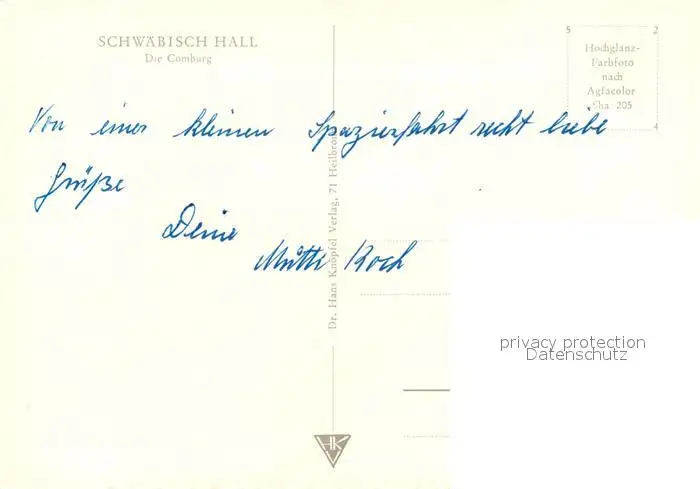 SCHWÄBISCH HALL
Die Comburg
5 2
Hochglanz-
Farbfoto
nach
Agfacolor
Sha 205
4
Von einer kleinen Spazierfahrt recht liebe
Grüße
Deine
Mutti Koch
Dr. Hans Knöpfel Verlag, 71 Heilbronn
HK
V
privacy protection
Datenschutz